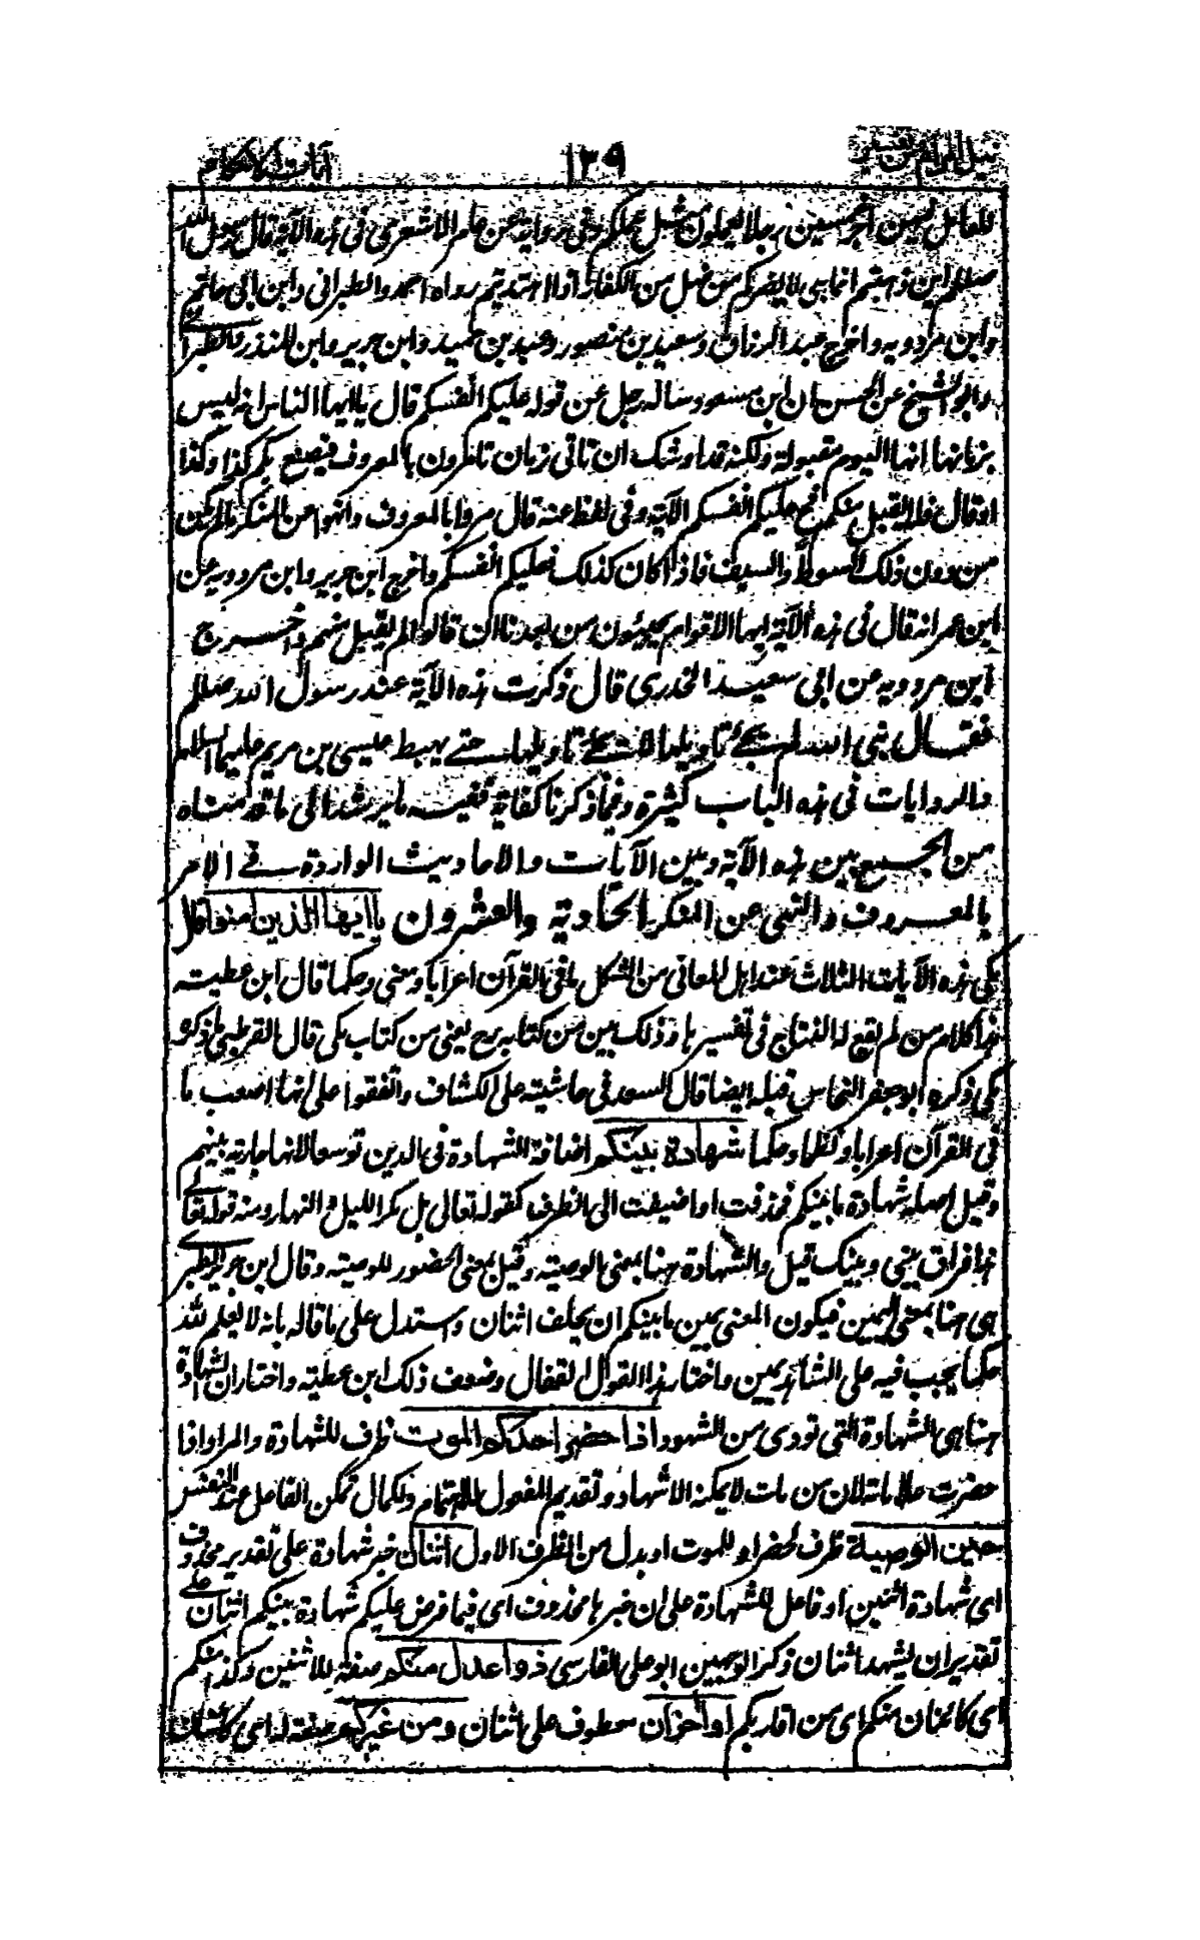 نيل المرام من تفسير ١٣٩ آيات الاحكام
للعامل فيهن اجر خمسين رجلا يعملون مثل عملكم وفي رواية عن عامر الاشعري في هذه الآية قال رسول الله
صللم اين ذهبتم انما هي لا يضركم من ضل من الكفار اذا اهتديتم رواه احمد والطبراني وابن ابي حاتم
وابن مردويه واخرج عبد الرزاق وسعيد بن منصور وعبد بن حميد وابن جرير وابن المنذر والطبراني
وابو الشيخ عن الحسن ان ابن مسعود ساله رجل عن قوله عليكم انفسكم قال يا ايها الناس انه ليس
بزمانها انها اليوم مقبولة ولكنه قد اوشك ان تاتي زمان تامرون بالمعروف فيصنع بكم كذا وكذا
او قال فلا يقبل منكم فح عليكم انفسكم الآية وفي لفظ عنه قال مروا بالمعروف وانهوا عن المنكر ما لم يكن
من دون ذلك السوط والسيف فاذا كان كذلك فعليكم انفسكم واخرج ابن جرير وابن مردويه عن
ابن عمر انه قال في هذه الآية انها لاقوام يجيئون من بعدنا ان قالوا لم يقبل منهم واخرج
ابن مردويه عن ابي سعيد الخدري قال ذكرت هذه الآية عند رسول الله صللم
فقال نبي الله لم يجئ تاويلها لا يجئ تاويلها حتى يهبط عيسى بن مريم عليهما السلام
والروايات في هذه الباب كثيرة وفيما ذكرنا كفاية ففيه ما يرشد الى ما قدمناه
من الجمع بين هذه الآية وبين الآيات والاحاديث الواردة في الامر
بالمعروف والنهي عن المنكر الحادية والعشرون يا ايها الذين امنوا قال
مكي هذه الآيات الثلاث عند اهل المعاني من اشكل ما في القرآن اعرابا ومعنى وحكما قال ابن عطية
هذا كلام من لم يقع له الثلج في تفسيرها وذلك بين من كتابه رح يعني من كتاب مكي قال القرطبي ما ذكره
مكي ذكره ابو جعفر النحاس قبله ايضا قال السعد في حاشيته على الكشاف واتفقوا على انها اصعب ما
في القرآن اعرابا ونظما وحكما شهادة بينكم اضافة الشهادة في البين توسعا لانها جارية بينهم
وقيل اصله شهادة ما بينكم فحذفت ما واضيفت الى الظرف كقوله تعالى بل مكر الليل والنهار ومنه قوله تعالى
هذا فراق بيني وبينك قيل والشهادة هنا بمعنى الوصية وقيل بمعنى الحضور للوصية وقال ابن جرير الطبري
هي هنا بمعنى اليمين فيكون المعنى يمين ما بينكم ان يحلف اثنان واستدل على ما قاله بانه لا يعلم لله
حكما يجب فيه على الشاهد يمين واختار هذا القول القفال وضعف ذلك ابن عطية واختار ان الشهادة
هنا هي الشهادة التي تودى من الشهود اذا حضر احدكم الموت ظرف للشهادة والمراد اذا
حضرت علاماته لان من مات لا يمكنه الاشهاد وتقديم المفعول للاهتمام ولكمال تمكن الفاعل عند النفس
حين الوصية ظرف لحضر او للموت او بدل من الظرف الاول اثنان خبر شهادة على تقدير محذوف
اى شهادة اثنين او فاعل للشهادة على ان خبرها محذوف اى فيما فرض عليكم شهادة بينكم اثنان على
تقدير ان يشهد اثنان ذكر الوجهين ابو علي الفارسي ذوا عدل منكم صفة للاثنين وكذا منكم
اى كائنان منكم اى من اقاربكم او آخران معطوف على اثنان ومن غيركم صفة له اى كائنان